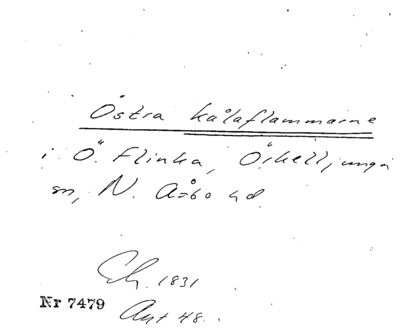 Östra kålaflammarne
i Ö. Flinka, Örkelljunga
sn, N. Åsbo hd.
Ch. 1831
Nr 7479
Akt 48.